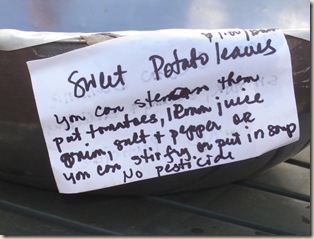 Sweet Potato leaves
you can steam them
put tomatoes, lemon juice
onion, salt & pepper or
you can stir fry or put in soup
No pesticide